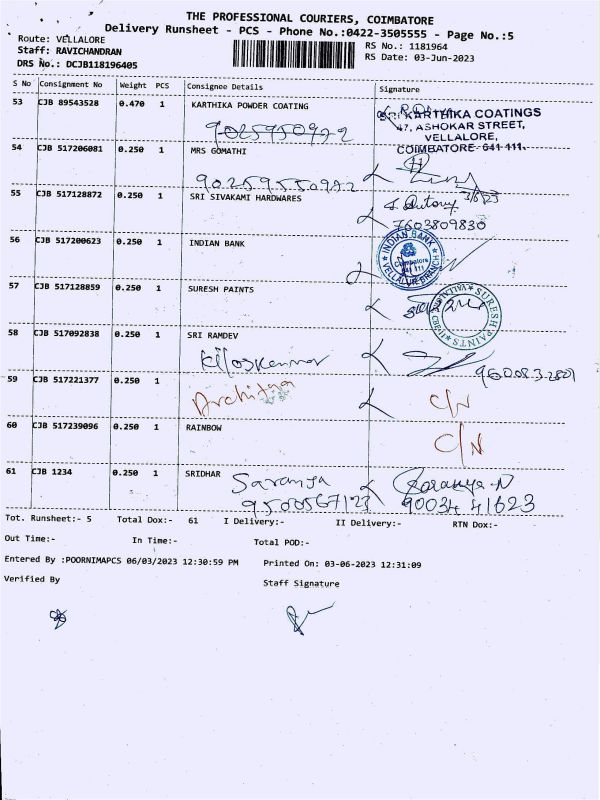 THE PROFESSIONAL COURIERS, COIMBATORE
Delivery Runsheet - PCS - Phone No.:0422-3505555 - Page No.:5
Route: VELLALORE
RS No.: 1181964
Staff: RAVICHANDRAN
RS Date: 03-Jun-2023
DRS No.: DCJB118196405
S No Consignment No Weight PCS Consignee Details Signature
53 CJB 89543528 0.470 1 KARTHIKA POWDER COATING
SRI KARTHIKA COATINGS
47, ASHOKAR STREET,
VELLALORE,
COIMBATORE-641 111.
9025950992
54 CJB 517206081 0.250 1 MRS GOMATHI
3/6/23
55 CJB 517128872 0.250 1 SRI SIVAKAMI HARDWARES
7603809830
56 CJB 517200623 0.250 1 INDIAN BANK
INDIAN BANK
Coimbatore
641 111
VELLALUR BRANCH
57 CJB 517128859 0.250 1 SURESH PAINTS
SURESH PAINTS
58 CJB 517092838 0.250 1 SRI RAMDEV
59 CJB 517221377 0.250 1
C/N
60 CJB 517239096 0.250 1 RAINBOW
C/N
61 CJB 1234 0.250 1 SRIDHAR
Saranya Saranya.N
9500567123 90034 41623
Tot. Runsheet:- 5 Total Dox:- 61 I Delivery:- II Delivery:- RTN Dox:-
Out Time:- In Time:- Total POD:-
Entered By :POORNIMAPCS 06/03/2023 12:30:59 PM Printed On: 03-06-2023 12:31:09
Verified By Staff Signature